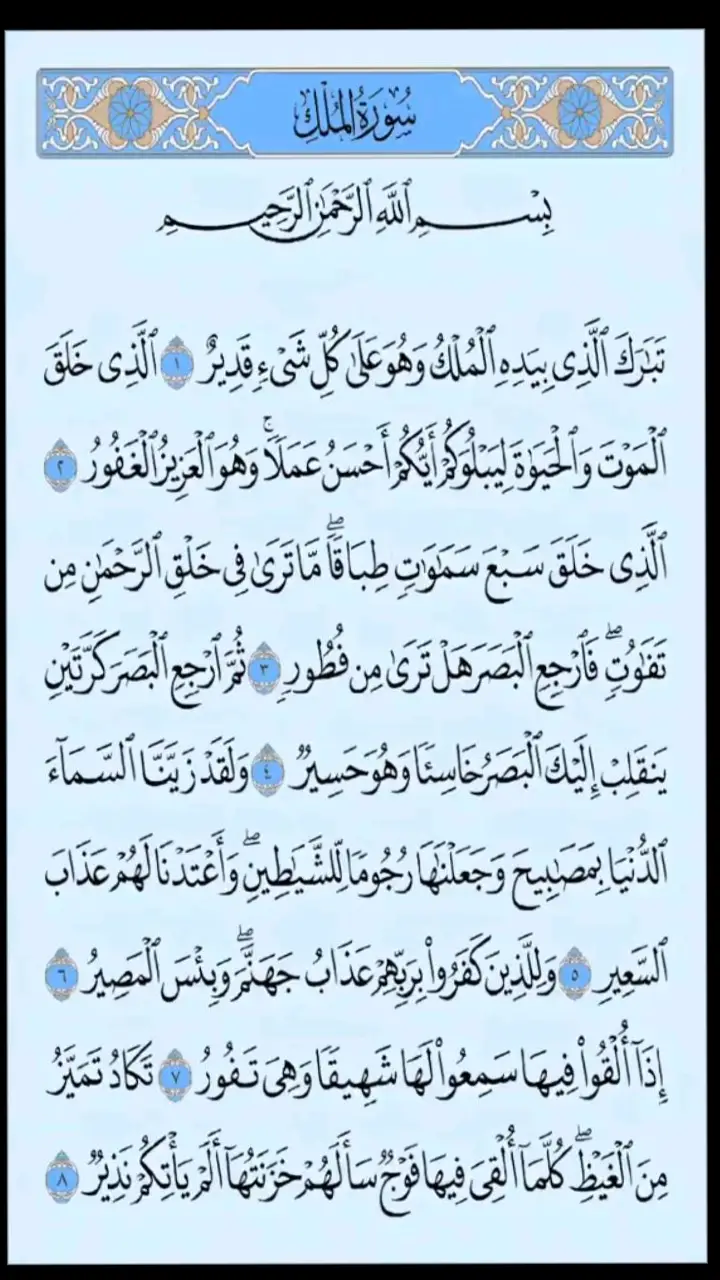 سُورَةُ المُلْكِ
بِسْمِ ٱللَّهِ ٱلرَّحْمَٰنِ ٱلرَّحِيمِ
تَبَٰرَكَ ٱلَّذِى بِيَدِهِ ٱلْمُلْكُ وَهُوَ عَلَىٰ كُلِّ شَىْءٍ قَدِيرٌ ١ ٱلَّذِى خَلَقَ
ٱلْمَوْتَ وَٱلْحَيَوٰةَ لِيَبْلُوَكُمْ أَيُّكُمْ أَحْسَنُ عَمَلًا ۚ وَهُوَ ٱلْعَزِيزُ ٱلْغَفُورُ ٢
ٱلَّذِى خَلَقَ سَبْعَ سَمَٰوَٰتٍ طِبَاقًا ۖ مَّا تَرَىٰ فِى خَلْقِ ٱلرَّحْمَٰنِ مِن
تَفَٰوُتٍ ۖ فَٱرْجِعِ ٱلْبَصَرَ هَلْ تَرَىٰ مِن فُطُورٍ ٣ ثُمَّ ٱرْجِعِ ٱلْبَصَرَ كَرَّتَيْنِ
يَنقَلِبْ إِلَيْكَ ٱلْبَصَرُ خَاسِئًا وَهُوَ حَسِيرٌ ٤ وَلَقَدْ زَيَّنَّا ٱلسَّمَآءَ
ٱلدُّنْيَا بِمَصَٰبِيحَ وَجَعَلْنَٰهَا رُجُومًا لِّلشَّيَٰطِينِ ۖ وَأَعْتَدْنَا لَهُمْ عَذَابَ
ٱلسَّعِيرِ ٥ وَلِلَّذِينَ كَفَرُوا۟ بِرَبِّهِمْ عَذَابُ جَهَنَّمَ ۖ وَبِئْسَ ٱلْمَصِيرُ ٦
إِذَآ أُلْقُوا۟ فِيهَا سَمِعُوا۟ لَهَا شَهِيقًا وَهِىَ تَفُورُ ٧ تَكَادُ تَمَيَّزُ
مِنَ ٱلْغَيْظِ ۖ كُلَّمَآ أُلْقِىَ فِيهَا فَوْجٌ سَأَلَهُمْ خَزَنَتُهَآ أَلَمْ يَأْتِكُمْ نَذِيرٌ ٨